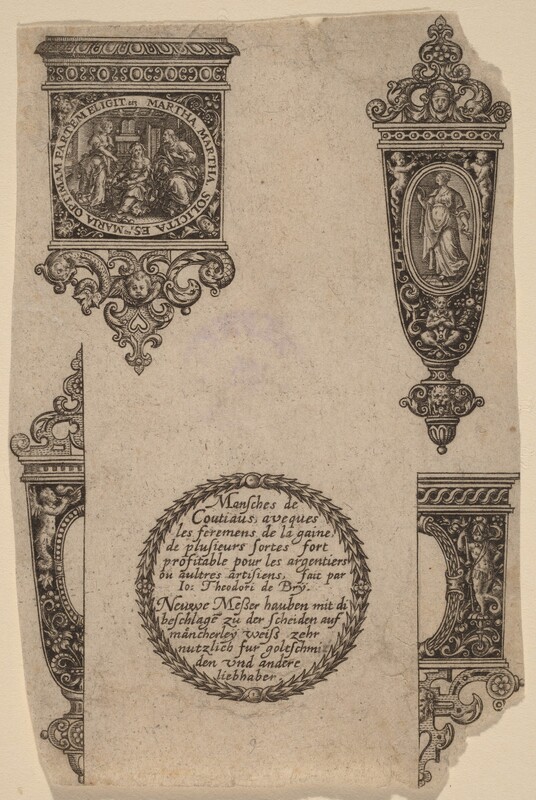 MARTHA MARTHA SOLICITA ES, MARIA OPTIMAM PARTEM ELIGIT
Mansches de
Coutiaus, aveques
les feremens de la gaine,
de plusieurs sortes fort
profitable pour les argentiers
ou aultres artisiens, fait par
Io: Theodori de Bry.
Neuwe Meßer hauben mit di
beschlage zu der scheiden auf
mancherley weiß zehr
nutzlich fur goltschmi
den vnd andere
liebhaber.